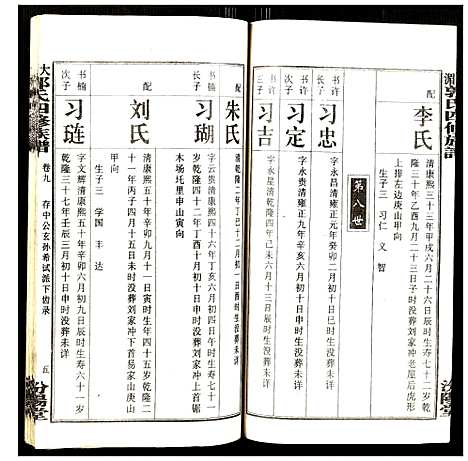 配
李氏
清康熙三十三年甲戌六月二十六日辰时生寿七十二岁乾
十年
六月十三日子时没葬刘家冲老屋后虎形
上排左边庚山甲向
生子三 习仁 义 智
第八世
习忠
字永
清雍正元年癸卯二月初十日
时生没葬未详
习定
字永贵清雍正九年辛亥六月初六日辰时生没葬未详
习吉
字永星清乾隆四年己未六月十三辰时生没葬未详
配
朱氏
清康熙
年丁
十二月初二日酉时生没葬未详
书楠
长子
习瑚
字云
清康熙四十六年丁亥六月初四日午时生寿七十一
岁乾隆四十二年丁酉十月初十日申时没葬刘家冲上首锯
木场圫里申山寅向
配
刘氏
清康熙五十年辛卯九月十一日寅时生年四十五岁乾隆二
十一年丙子四月十五日未时没葬刘家冲下首易家山庚山
甲向
生子三 学国 丰 达
书楠
次子
习琏
字文
清康熙五十年辛卯六月初九日辰时生寿六十一岁
乾隆三十七年壬辰三月初十日申时没葬未详
大郭氏四修族谱
卷九 存中公玄孙希试派下齿录
五
汾阳堂